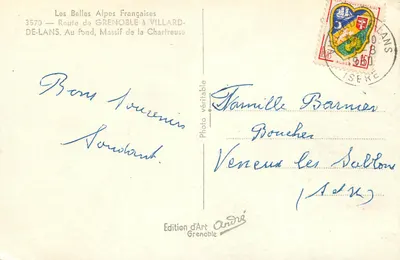 Les Belles Alpes Françaises
3573 — Route de GRENOBLE à VILLARD-
DE-LANS. Au Fond, Massif de la Chartreuse
Bons Souvenirs
Photo véritable
Famille Barnier
Boucher
Veneux les Sablon
(S et M)
LANS
ISERE
Edition d'Art André
Grenoble